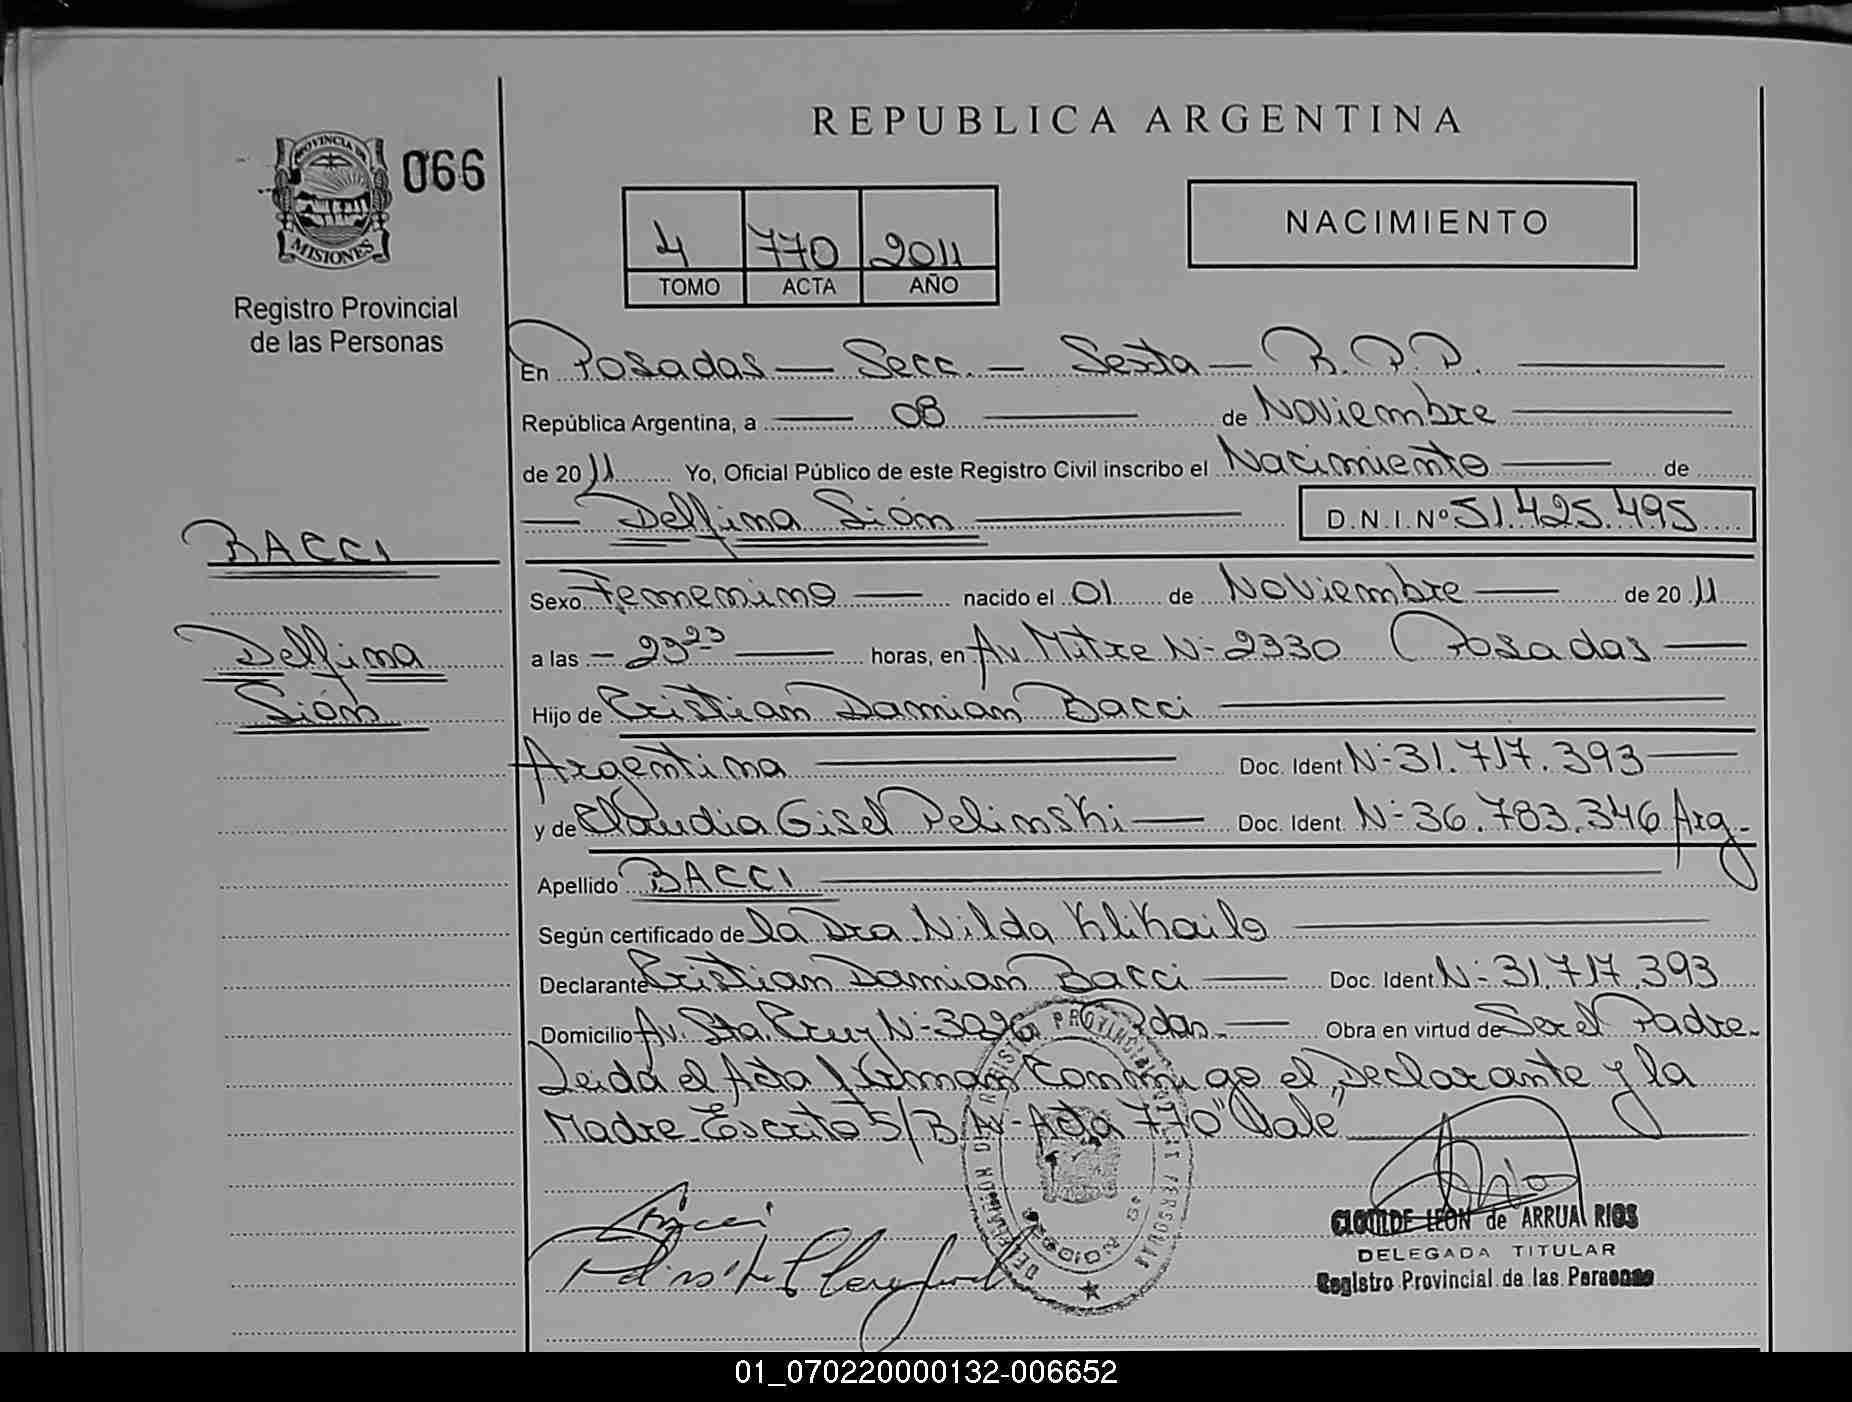 REPUBLICA ARGENTINA
PROVINCIA DE
MISIONES
066
Registro Provincial
de las Personas
4 770 2011
TOMO ACTA AÑO
NACIMIENTO
En Posadas — Secc. — Sexta — R.P.P.
República Argentina, a 08 de Noviembre
de 2011 Yo, Oficial Público de este Registro Civil inscribo el Nacimiento de
Delfina Sión D.N.I.Nº 51.425.495
BACCI
Sexo Femenino nacido el 01 de Noviembre de 2011
Delfina
a las - 23 23 horas, en Av. Mitre N- 2330 Posadas
Sión
Hijo de Cristian Damian Bacci
Argentina Doc. Ident N- 31.717.393
y de Claudia Gisel Pelinski Doc. Ident. N- 36.783.346 Arg.
Apellido BACCI
Según certificado de la Dra. Nilda
Declarante Cristian Damian Bacci Doc. Ident. N- 31.717.393
Domicilio Av. Sta. Cruz N- Pdas. Obra en virtud de Ser el Padre.
Leida el Acta firman Conmigo el Declarante y la
Madre. Escrito S/B N- Acta 770 "Vale"
Bacci
CLOTILDE LEON de ARRUA RIOS
DELEGADA TITULAR
Registro Provincial de las Personas
01_070220000132-006652